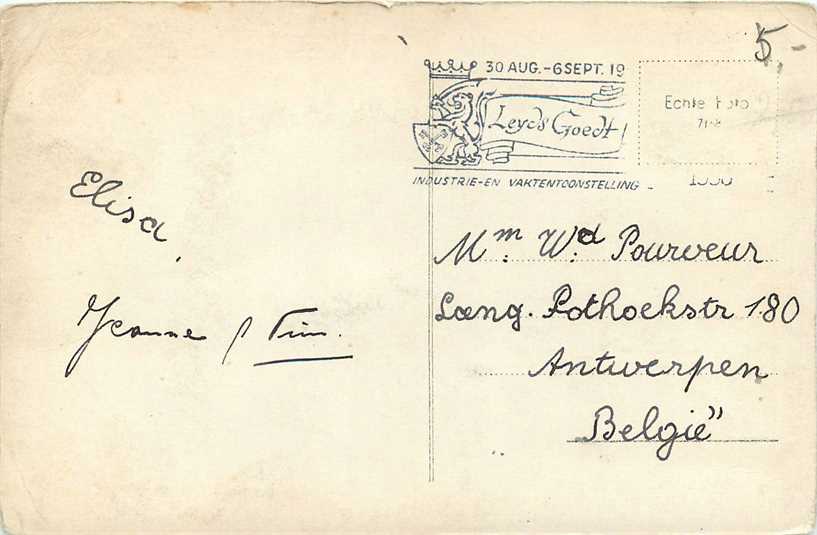 5,-
30 AUG.-6 SEPT. 19
Leyds Goedt
INDUSTRIE-EN VAKTENTOONSTELLING
Echte Foto
Elisa,
Jeanne
Mm. Wd. Pourveur
Lang. Pothoekstr 180
Antwerpen
België